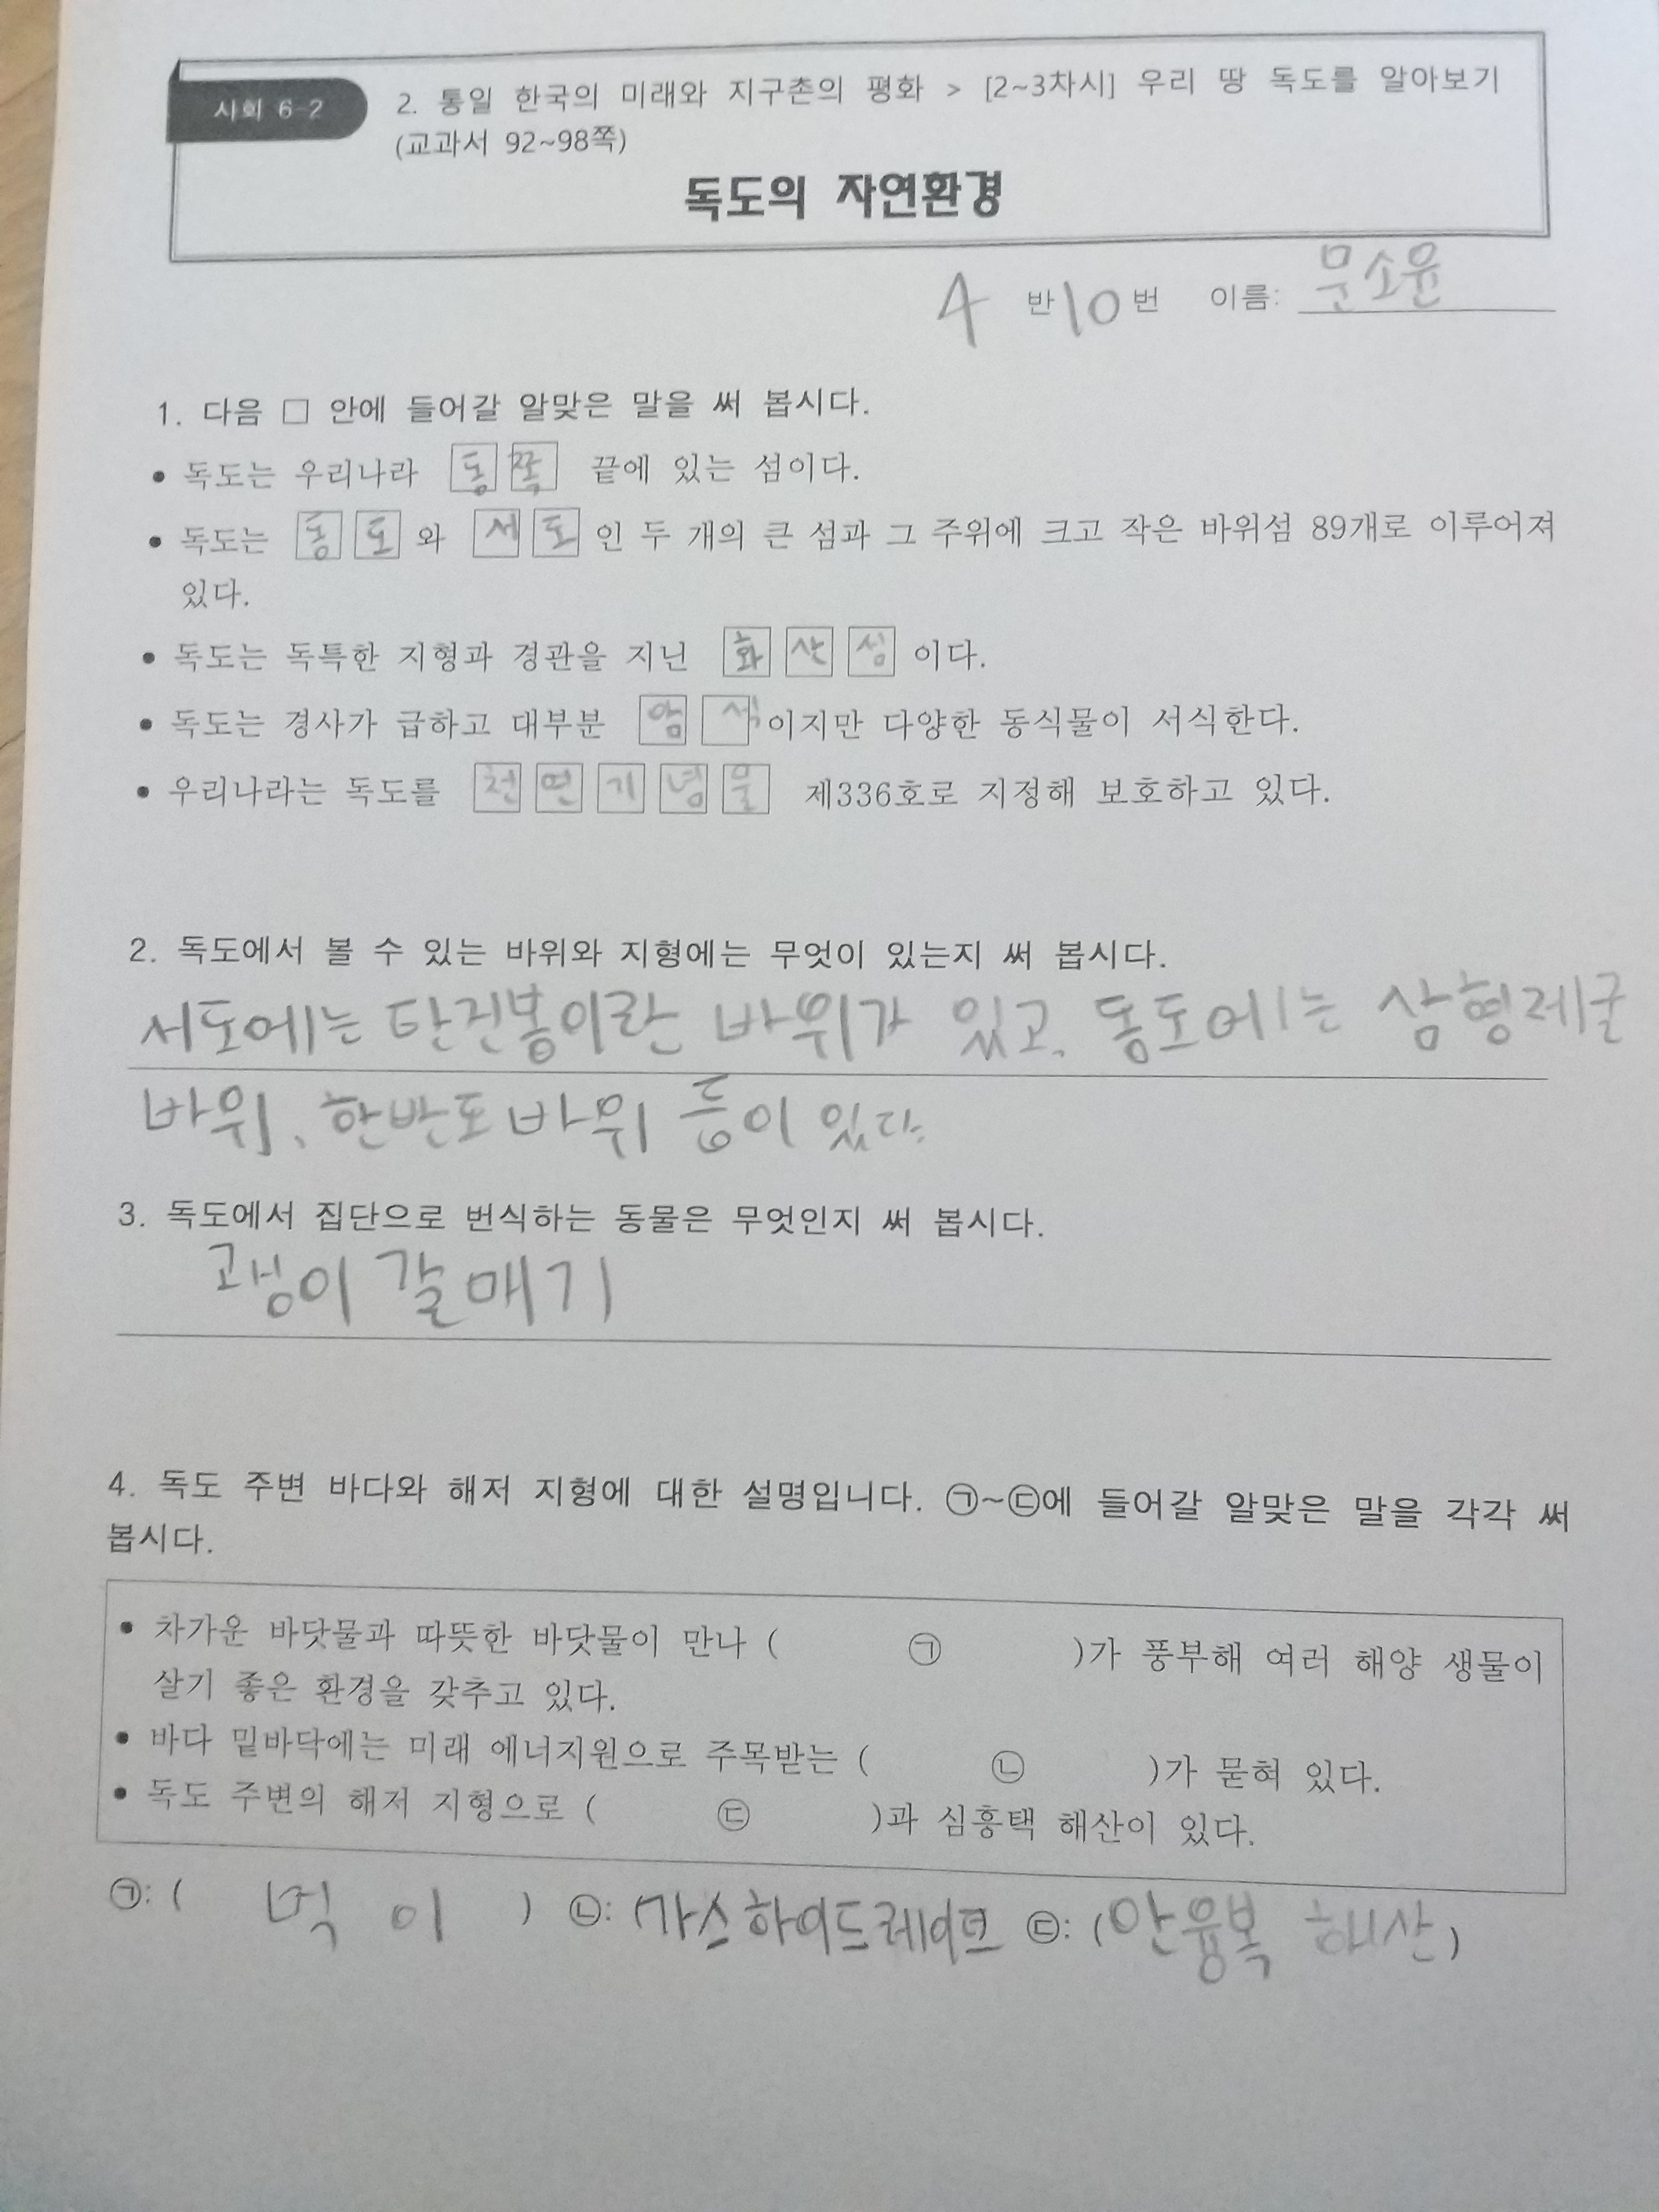 사회 6-2
2. 통일 한국의 미래와 지구촌의 평화 > [2~3차시] 우리 땅 독도를 알아보기
(교과서 92~98쪽)
독도의 자연환경
4 반 10 번 이름: 문소윤
1. 다음 □ 안에 들어갈 알맞은 말을 써 봅시다.
• 독도는 우리나라 동쪽 끝에 있는 섬이다.
• 독도는 동도와 서도인 두 개의 큰 섬과 그 주위에 크고 작은 바위섬 89개로 이루어져
있다.
• 독도는 독특한 지형과 경관을 지닌 화산섬이다.
• 독도는 경사가 급하고 대부분 암석이지만 다양한 동식물이 서식한다.
• 우리나라는 독도를 천연기념물 제336호로 지정해 보호하고 있다.
2. 독도에서 볼 수 있는 바위와 지형에는 무엇이 있는지 써 봅시다.
서도에는 탄건봉이란 바위가 있고, 동도에는 삼형제굴
바위, 한반도바위 등이 있다.
3. 독도에서 집단으로 번식하는 동물은 무엇인지 써 봅시다.
괭이 갈매기
4. 독도 주변 바다와 해저 지형에 대한 설명입니다. ㉠~㉢에 들어갈 알맞은 말을 각각 써
봅시다.
• 차가운 바닷물과 따뜻한 바닷물이 만나 ( ㉠ )가 풍부해 여러 해양 생물이
살기 좋은 환경을 갖추고 있다.
• 바다 밑바닥에는 미래 에너지원으로 주목받는 ( ㉡ )가 묻혀 있다.
• 독도 주변의 해저 지형으로 ( ㉢ )과 심흥택 해산이 있다.
㉠: ( 먹이 ) ㉡: (가스하이드레이트 ㉢: (안용복 해산)